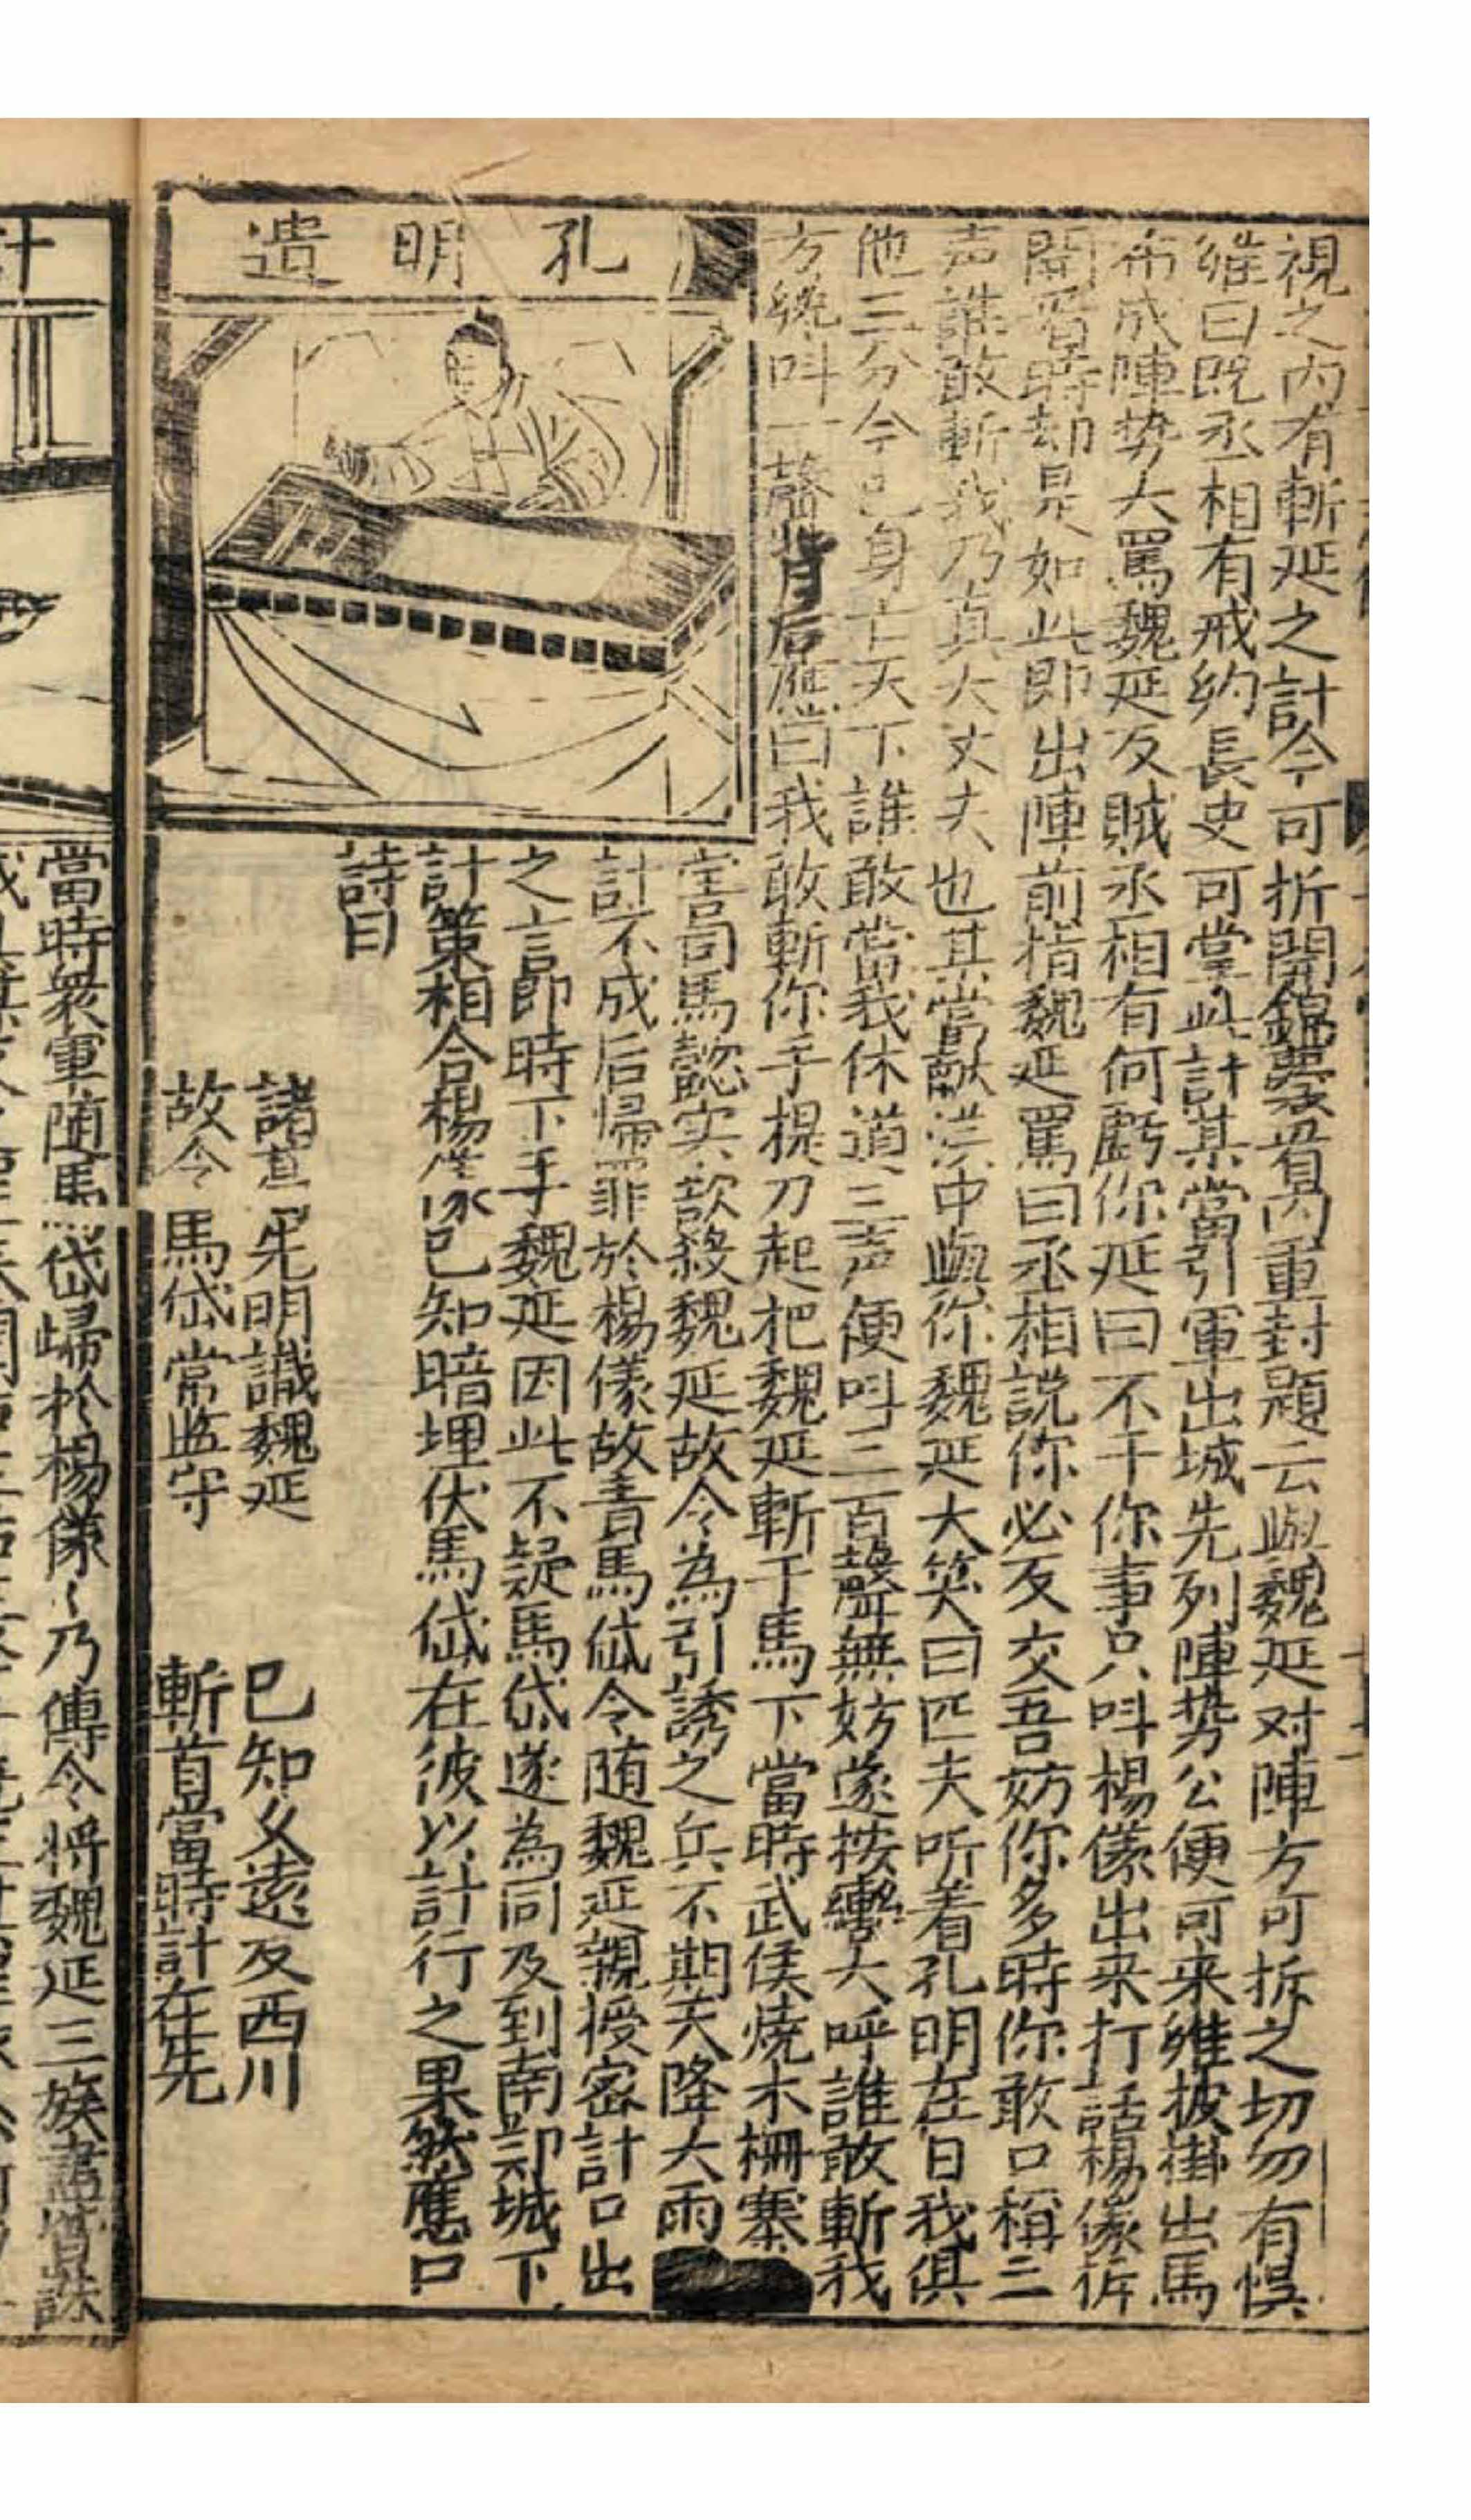 視之内有斬延之計今可折開錦囊看内重封題云與魏延对陣方可拆之切勿有悞
維曰既丞相有戒約長史可掌此計某當引軍出城先列陣势公便可来維披掛出馬
布成陣势大罵魏延反賊丞相有何虧你延曰不干你事只呌楊儀出来打話楊儀拆
開看時却是如此即出陣前指魏延罵曰丞相說你必反交吾妨你多時你敢口稱三
声誰敢斬我乃真大丈夫也某當献漢中與你魏延大笑曰匹夫听着孔明在日我俱
他三分今已身亡天下誰敢當我休道三声便呌三百聲無妨遂按轡大呼誰敢斬我
方纔呌一聲背后應曰我敢斬你手提刀起把魏延斬于馬下當時武侯燒木柵寨
孔明遺
害司馬懿实欲殺魏延故令為引誘之兵不期天降大雨
計不成后歸罪於楊儀故書馬岱令随魏延親授密計口出
之言即時下手魏延因此不疑馬岱遂為同及到南郑城下
計策相合楊儀已知暗埋伏馬岱在彼以計行之果然應口
詩曰
諸葛先明識魏延　已知久遠反西川
故令馬岱常監守　斬首當時計在先
計
當時衆軍随馬岱歸於楊儀〻乃傳令将魏延三族盡皆誅